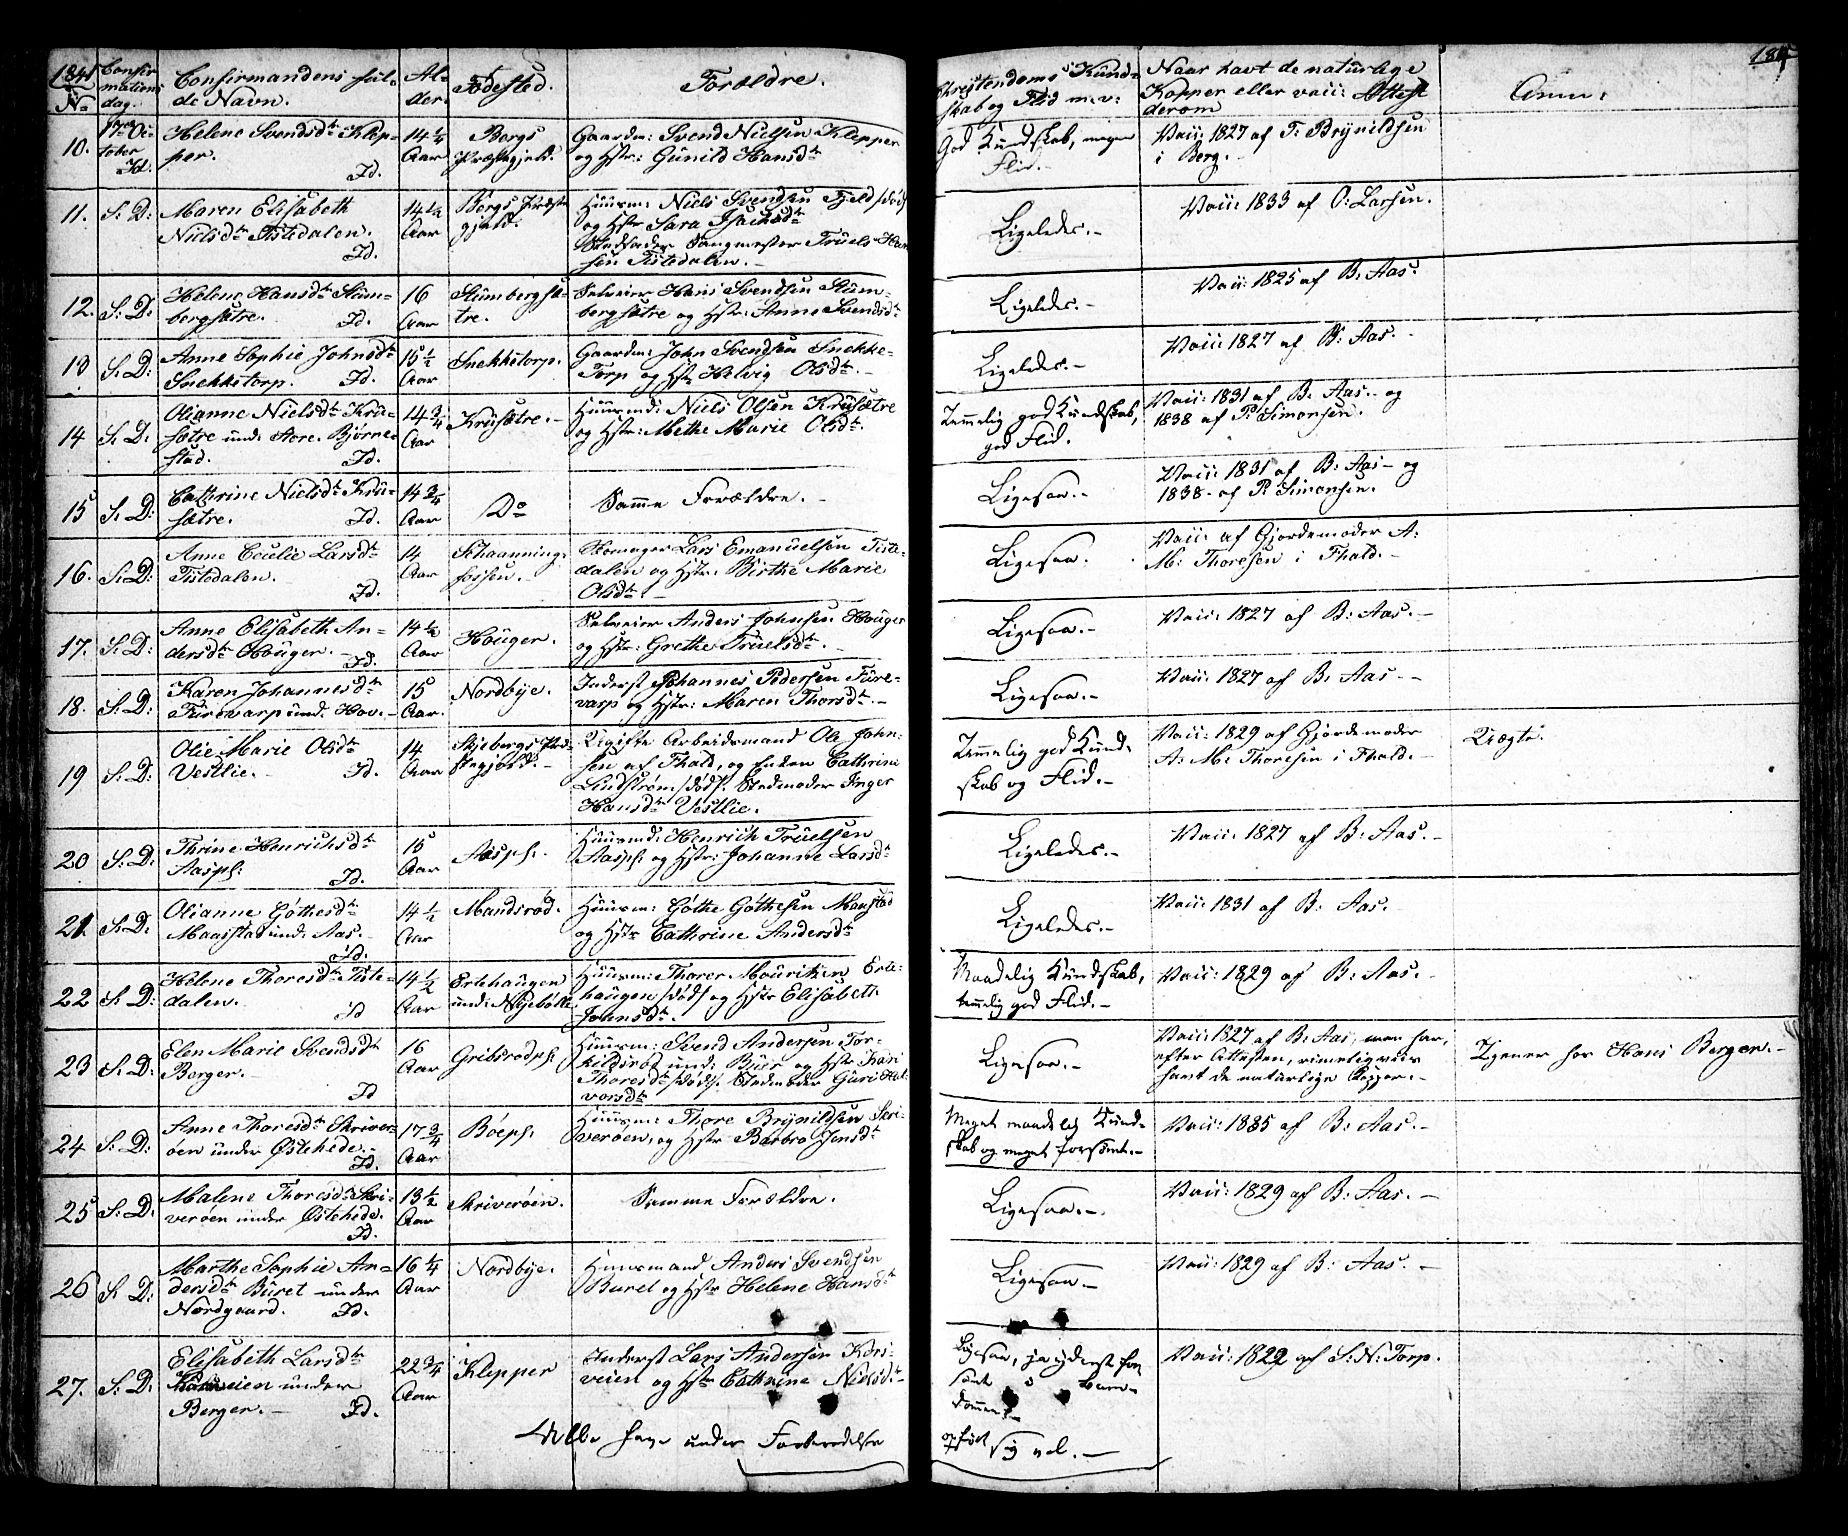 1841
No
Confirmations dag.
Confirmandens fulde Navn.
Alder.
Fødested.
Forældre.
Christendoms Kundskab og Flid m.v:
Naar havt de naturlige Kopper eller vacc: Attest derom
Anm:
10. 17de October Id. Helene Svendsdtr Klepper. Id. 14 1/4 Aar Bergs Præstegjeld. Gaardm: Svend Nielsen Klepper og Hstr: Gunild Hansdtr God Kundskab, megen Flid. Vacc: 1827 af T. Brynildsen i Berg.-
11. S: D: Maren Elisabeth Nielsdtr Tistedalen. Id. 14 1/2 Aar Bergs Præstegjeld. Huusm: Niels Svendsen Fjeld /død/ og Hstr Sara Isachsdtr Stedfader Sangmester Truels Hansen Tistedalen.- Ligeledes.- Vacc: 1833 af O: Larsen.
12. S: D: Helene Hansdtr Stumbergsætre. Id. 16 Aar Stumbergsætre. Selveier Hans Svendsen Stumbergsætre og Hstr: Anne Svendsdtr Ligeledes.- Vacc: 1825 af B: Aas.
13 S: D: Anne Sophie Johnsdtr Snekketorp. Id. 15 1/2 Aar Snekketorp. Gaardm: John Svendsen Snekketorp og Hstr Helvig Olsdtr.- Ligeledes.- Vacc: 1827 af B: Aas.-
14 S. D. Olianne Nielsdtr Krusætre und: Store Bjørnestad. Id. 14 3/4 Aar Krusætre.- Huusmd: Niels Olsen Krusætre og Hstr: Methe Marie Olsdtr. Temmelig god Kundskab, god Flid. Vacc: 1831 af B. Aas.- og 1838 af P. Simonsen.
15 S. D: Cathrine Nielsdtr Krusætre. Id. 14 3/4 Aar Do Samme Forældre.- Ligesaa.- Vacc: 1831 af B: Aas- og 1838- af P. Simonsen.
16. S: D: Anne Cecilie Larsdtr Tistedalen. Id. 14 Aar Schaanningsfossen. Skomager Lars Emanuelsen Tistedalen og Hstr: Birthe Marie Olsdtr.- Ligesaa. Vacc: af Gjordemoder A: M: Thoresen i Fhald.-
17. S: D: Anne Elisabeth Andersdtr Houger.- Id. 14 1/2 Aar Houger. Selveier Anders Johnsen Houger og Hstr: Grethe Truelsdtr.- Ligesaa.- Vacc: 1827 af B: Aas.-
18. S: D: Karen Johannesdtr Furevarp und: Hov.- 15 Aar. Nordbye. Inderst Johannes Pedersen Furevarp og Hstr: Maren Thorsdtr.- Ligesaa.- Vacc: 1827 af B: Aas.-
19 S: D: Olie Marie Olsdtr Vestlie.- Id. 14 Aar Skjebergs Præstegjeld.- Ugifte Arbeidsmand Ole Johnsen af Fhald, og Enken Cathrine Lindstrøm /død/. Stedmoder Inger Hansdtr Vestlie. Temmelig god Kundskab og Flid.- Vacc: 1829 af Gjordemoder A. M: Thoresen i Fhald.- Uægte.
20 S: D: Thrine Henrichsdtr Aaspl: Id. 15 Aar Aaspl. Huusmd: Henrich Truelsen Aaspl: og Hstr: Johanne Larsdtr Ligeledes.- Vacc: 1827 af B: Aas.-
21. S: D: Olianne Göthesdtr Maastad und: Aas.- Id. 14 1/2 Aar Mandsrød. Huusm: Göthe Göthesen Maastad og Hstr Cathrine Andersdtr Ligeledes.- Vacc: 1831 af B: Aas.-
22 S. D: Helene Thoresdtr Tistedalen. Id 14 1/2 Aar Ertehaugen und: Nyebølle Huusm: Thorer Mouritzen Ertehaugen /død/ og Hstr Elisabeth Johnsdtr. Maadelig Kundskab, temmelig god Flid.- Vacc: 1829 af B: Aas.-
23 S: D: Elen Marie Svendsdtr Berger.- Id 16 Aar Gribsrødpl: Huusm: Svend Andersen Torkildsrød und: Buer og Hstr Kari Thoresdtr /død/. Stedmoder Guri Halvorsdtr Ligesaa.- Vacc: 1827 af B: Aas, men har, efter Attesten, rimeligviis havt de naturlige Kopper.- Tjener hos Hans Berger.-
24 S: D: Anne Thoresdtr Skriverøen under Østehede.- Id. 17 3/4 Aar Böepl: Huusm: Thore Brynildsen Skriverøen, og Hstr Barbro Jensdtr Meget maadelig Kundskab og meget forsømt.- Vacc: 1835 af B: Aas.-
25 S: D: Malene Thoresdtr Skriverøen under Østehede. Id. 13 1/2 Aar Skriverøen. Samme Forældre. Ligesaa.- Vacc: 1829 af B: Aas.-
26 S. D: Marthe Sophie Andersdtr Buret under Nordgaard. Id. 16 1/4 Aar Nordbye. Huusmand Anders Svendsen Buret og Hstr Helene Hansdtr Ligesaa.- Vacc: 1829 af B: Aas.-
27. S: D: Elisabeth Larsdtr Korsveien under Berger.- Id. 22 3/4 Aar Klepper Inderst Lars Andersen Korsveien og Hstr Cathrine Nielsdtr- Ligesaa, ja yderst forsømt i Barndommen.- Vacc: 1822 af S: N: Torp.
Alle have under Forberedelsen opført sig vel.-